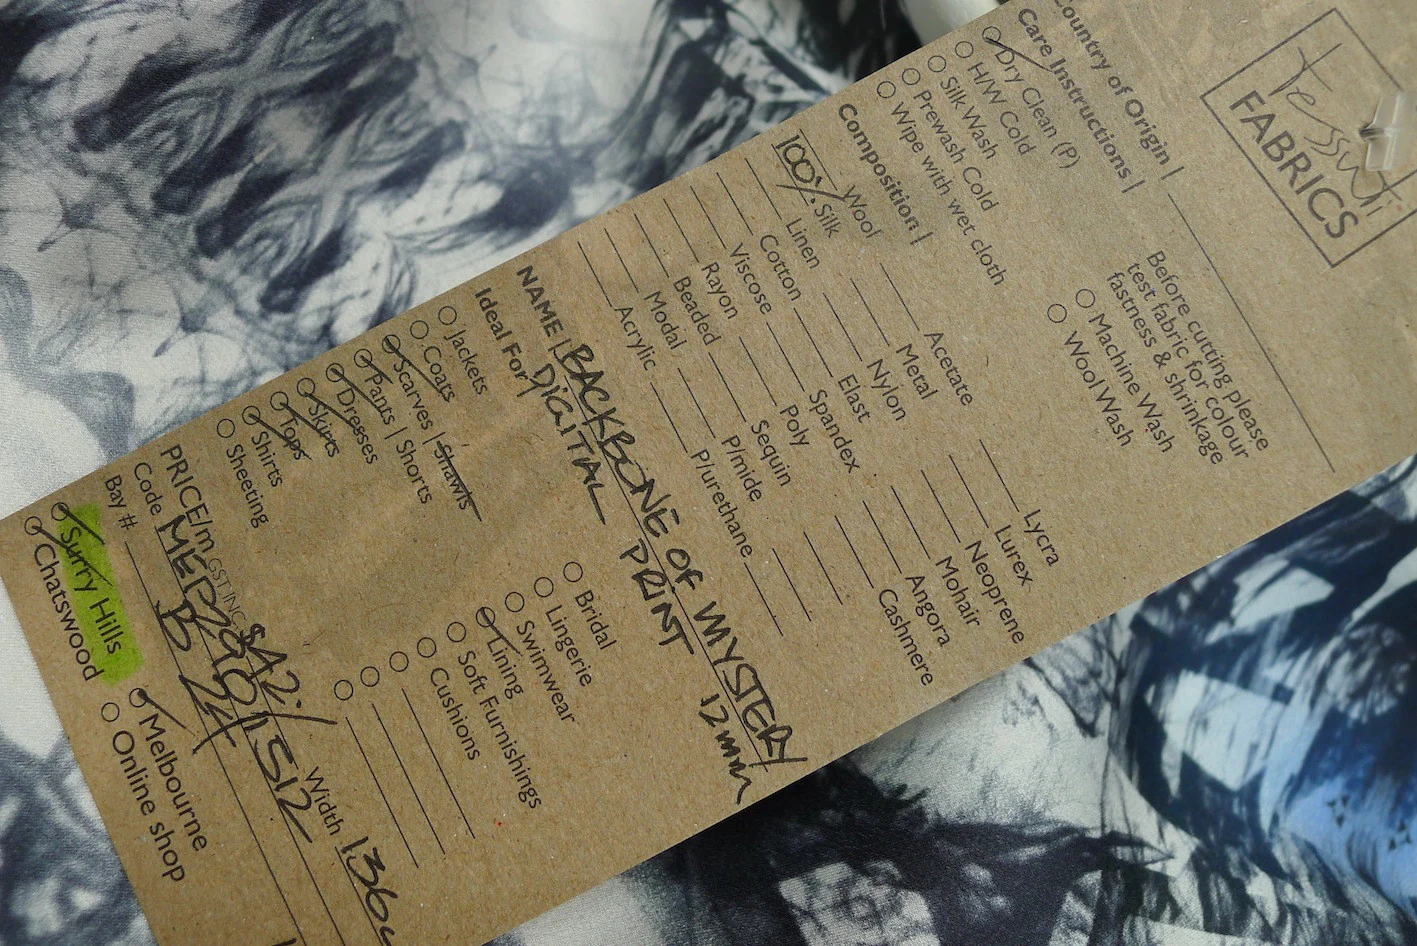 Tessuti
FABRICS
Country of Origin |
Care Instructions |
Dry Clean (P)
H/W Cold
Silk Wash
Prewash Cold
Wipe with wet cloth
Before cutting please
test fabric for colour
fastness & shrinkage
Machine Wash
Wool Wash
Composition |
Wool
100% Silk
Linen
Cotton
Viscose
Rayon
Beaded
Modal
Acrylic
Acetate
Metal
Nylon
Elast
Spandex
Poly
Sequin
P/mide
P/urethane
Lycra
Lurex
Neoprene
Mohair
Angora
Cashmere
NAME | BACKBONE OF MYSTERY
DIGITIAL PRINT 12mm
Ideal For
Jackets
Coats
Scarves | Shawls
Pants | Shorts
Dresses
Skirts
Tops
Shirts
Sheeting
Bridal
Lingerie
Swimwear
Lining
Soft Furnishings
Cushions
PRICE/m GST INC $42.- Width 136c
Code
Bay # B 24
Surry Hills
Chatswood
Melbourne
Online shop